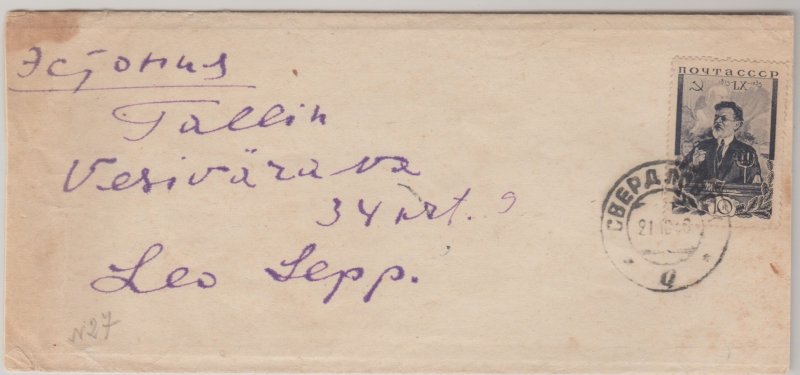 Эстония
Tallin
Vesivärava
34 krt. 9
Leo Sepp.
N27
ПОЧТА СССР
LX
10
СВЕРДЛ
21 10
Ц